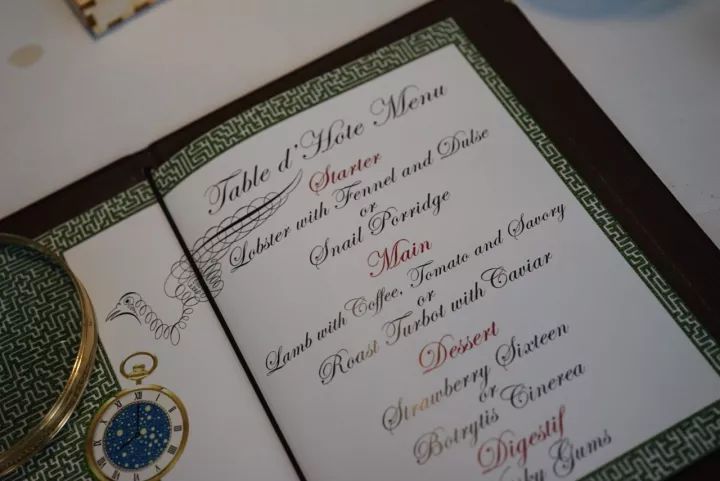 Table d'Hôte Menu
Starter
Lobster with Fennel and Dulse
or
Snail Porridge
Main
Lamb with Coffee, Tomato and Savory
or
Roast Turbot with Caviar
Dessert
Strawberry Sixteen
or
Botrytis Cinerea
Digestif
Gums